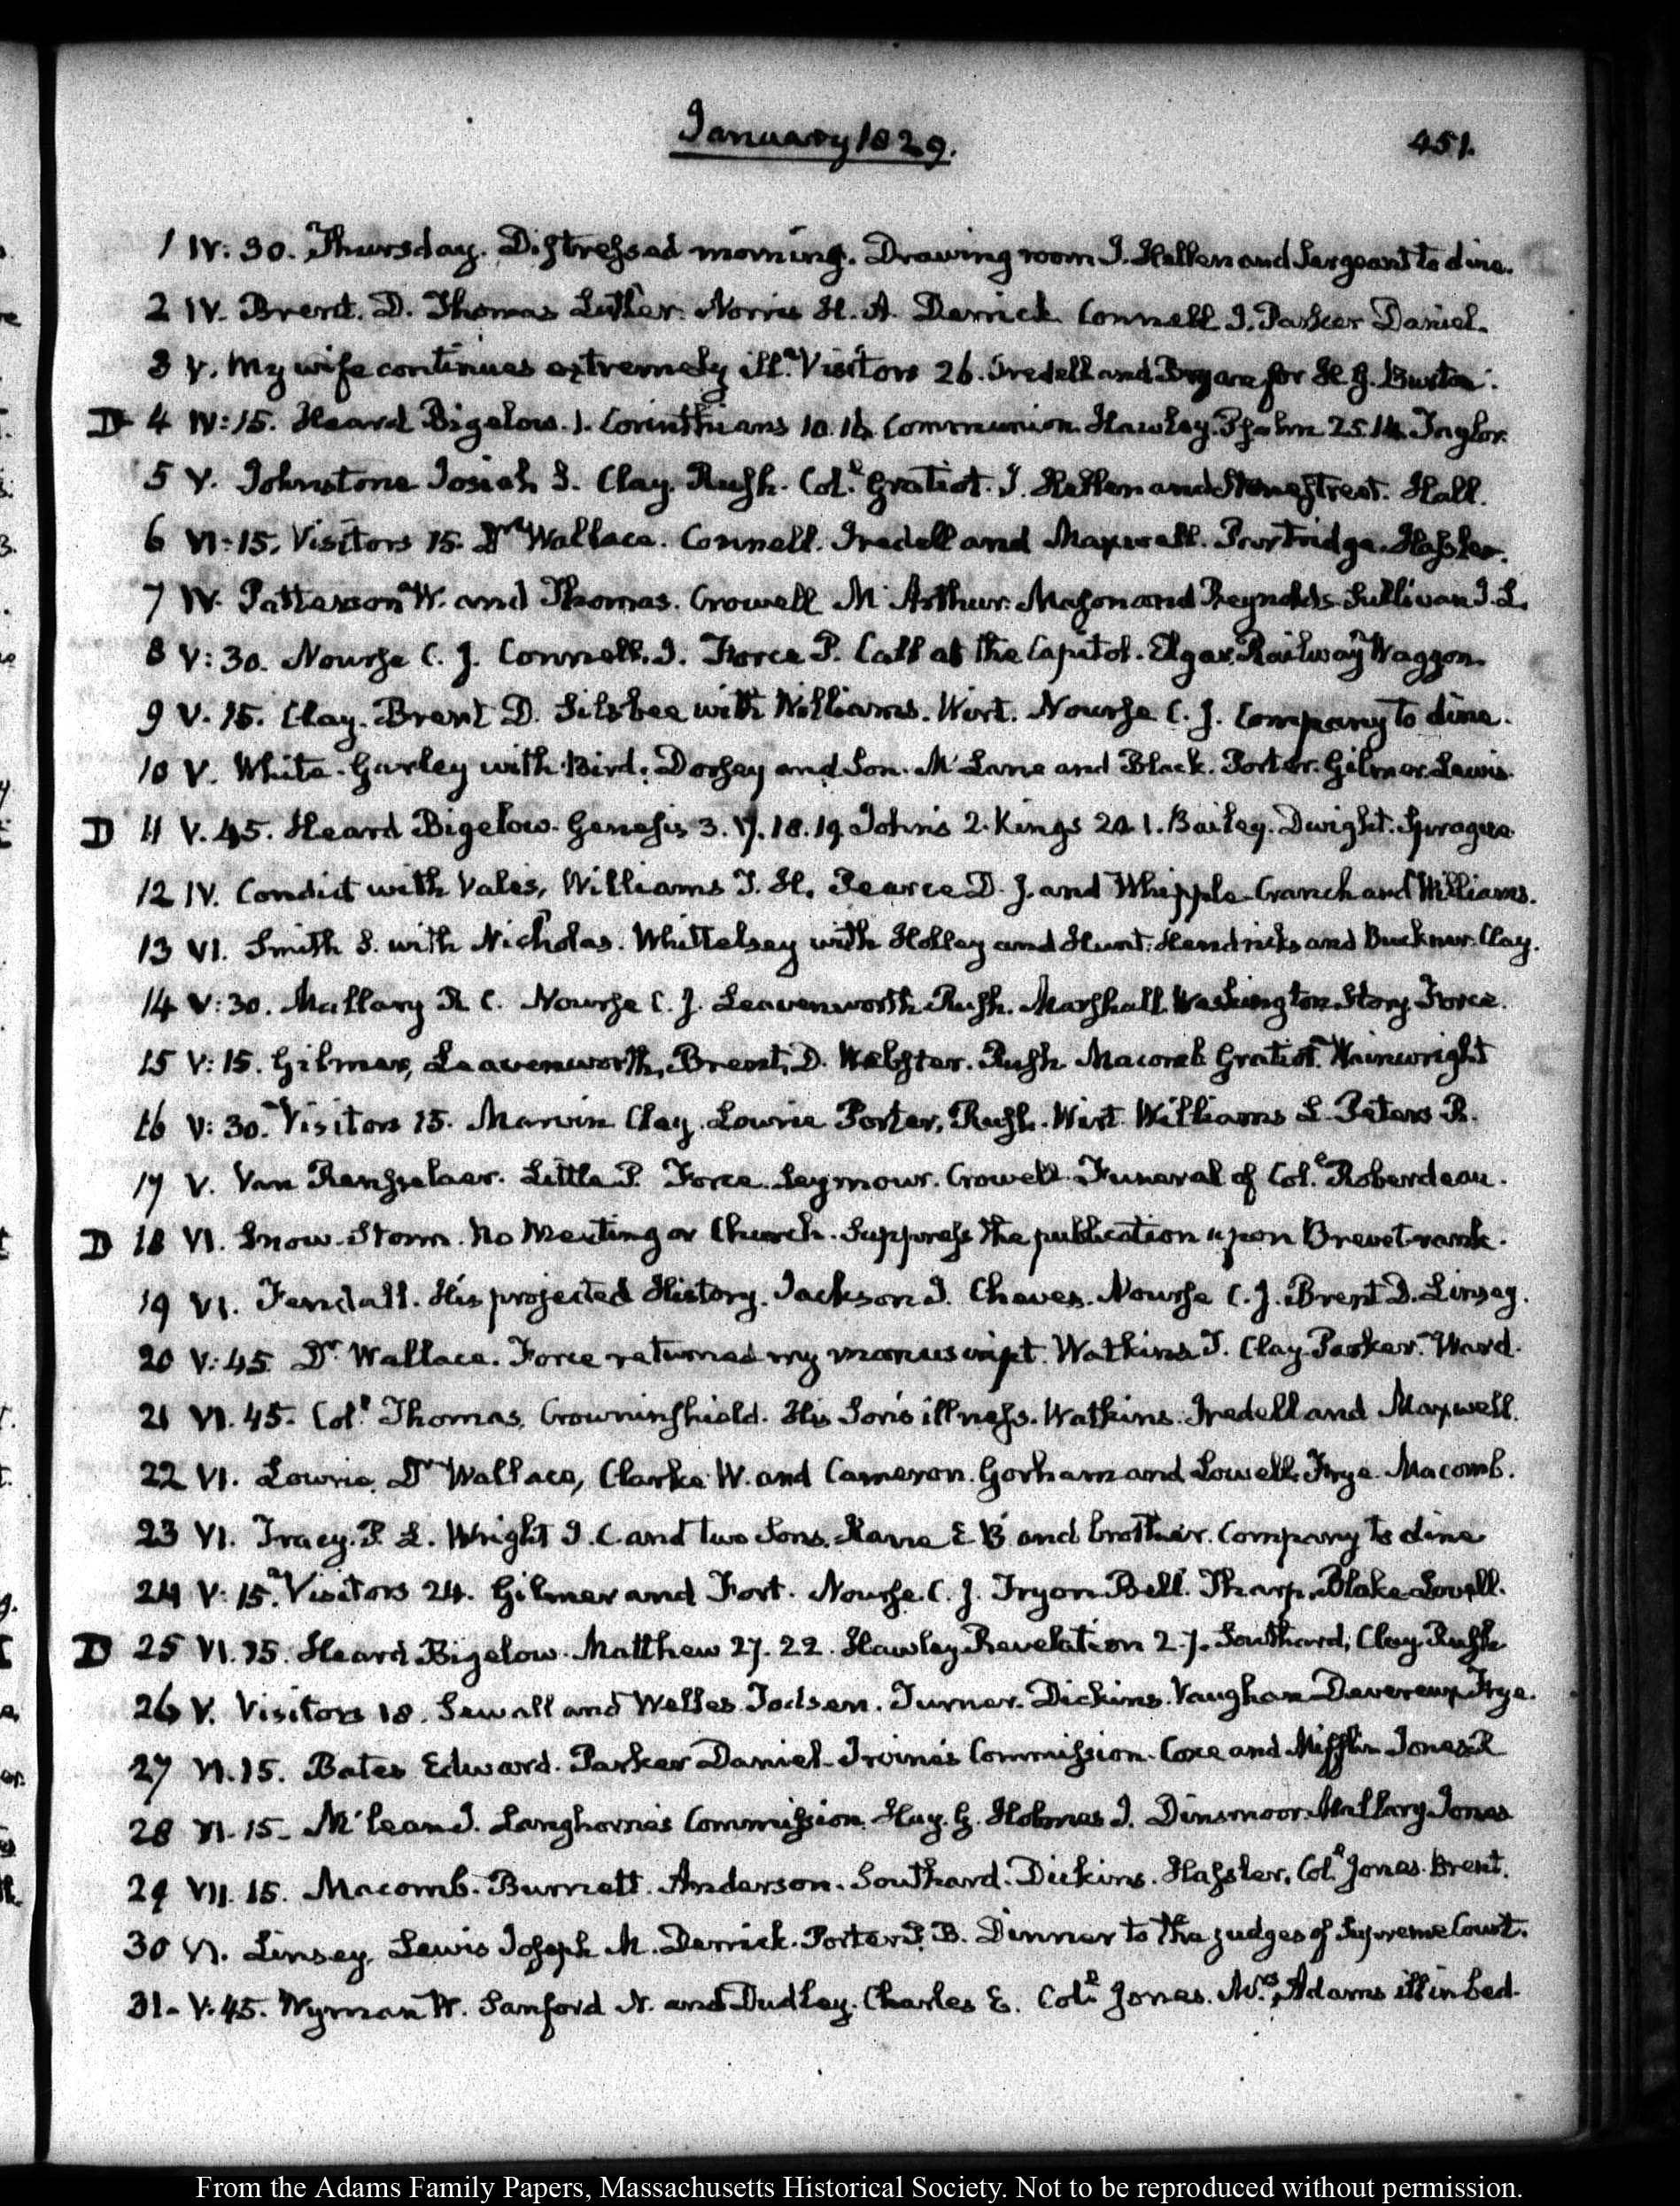 January 1829.
451.
1 IV: 30. Thursday. Distressed morning. Drawing room J. Hellen and Sergeant to dine.
2 IV. Brent. D. Thomas Luther. Norris H. A. Derrick. Connell J. Parker Daniel.
3 V. My wife continues extremely ill. Visitors 26. Iredell and for H. G. Burton.
D 4 IV: 15. Heard Bigelow. 1. Corinthians 10. 16. Communion. Hawley. Psalm 25. 14. Taylor.
5 V. Johnstone Josiah S. Clay. Rush. Col.l Gratiot. J. Hellen and Stonestreet. Hall.
6 VI: 15. Visitors 15. Dr. Wallace. Connell. Iredell and Maxwell. Partridge. Hassler.
7 IV. Patterson W. and Thomas. Crowell McArthur. Mason and Reynolds. Sullivan J. L.
8 V: 30. Nourse C. J. Connell. J. Force P. Call at the Capitol. Elgar. Railway Waggon.
9 V. 15. Clay. Brent D. Silsbee with Williams. Wirt. Nourse C. J. Company to dine.
10 V. White. Gurley with Bird. Dorsey and Son. McLane and Black. Porter. Gilmer. Lewis.
D 11 V. 45. Heard Bigelow. Genesis 3. 17. 18. 19. Johns 2. Kings 20. 1. Bailey. Dwight. Sprague
12 IV. Condict with Vales, Williams T. H. Pearce D. J. and Whipple. Cranch and Williams.
13 VI. Smith S. with Nicholas. Whittelsey with Holley and Hunt. Hendricks and Buckner. Clay.
14 V: 30. Mallary R C. Nourse C. J. Leavenworth. Rush. Marshall. Washington. Story. Force.
15 V: 15. Gilmer, Leavenworth, Brent, D. Webster. Rush. Macomb. Gratiot. Wainwright
16 V: 30. Visitors 15. Marvin Clay. Lowrie Porter, Rush. Wirt. Williams L. Peters R.
17 V. Van Rensselaer. Little P. Force. Seymour. Crowell. Funeral of Col.l Roberdeau.
D 18 VI. Snow-Storm. No Meeting or Church. Suppress the publication upon Brevet-rank.
19 VI. Fendall. His projected History. Jackson J. Cheves. Nourse C. J. Brent D. Linsey.
20 V: 45. Dr. Wallace. Force returned my manuscript. Watkins T. Clay. Parker. Ward.
21 VI. 45. Col.l Thomas, Crowninshield. His Son's illness. Watkins. Iredell and Maxwell.
22 VI. Lowrie, Dr. Wallace, Clarke W. and Cameron. Gorham and Lowell. Frye. Macomb.
23 VI. Tracy. P. L. Wright J. C. and two Sons. Kane E K and brother. Company to dine
24 V: 15. Visitors 24. Gilmer and Fort. Nourse. C. J. Tryon. Bell. Tharp. Blake. Lovell.
D 25 VI. 15. Heard Bigelow. Matthew 27. 22. Hawley Revelation 2. 7. Southard, Clay. Rush
26 V. Visitors 18. Sewall and Welles. Todsen. Turner. Dickins. Vaughan. Devereux Frye.
27 VI. 15. Bates Edward. Parker Daniel. Irvine's Commission. Coxe and Mifflin Jones R
28 VI. 15. McLean J. Langhorne's Commission. Hay. G. Holmes J. Dinsmoor. Mallary Jones
29 VII. 15. Macomb. Burnett. Anderson. Southard. Dickins. Hassler, Col.l Jones. Brent.
30 VI. Linsey. Lewis Joseph M. Derrick. Porter P. B. Dinner to the judges of Supreme Court.
31. V: 45. Wyman W. Sanford N. and Dudley. Charles E. Col.l Jones. Mrs. Adams ill in bed.
From the Adams Family Papers, Massachusetts Historical Society. Not to be reproduced without permission.